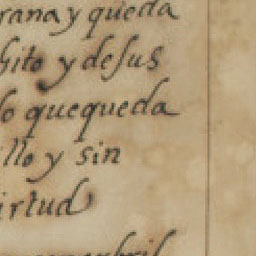 rana y queda
hito y desus
lo quequeda
illo y sin
irtud